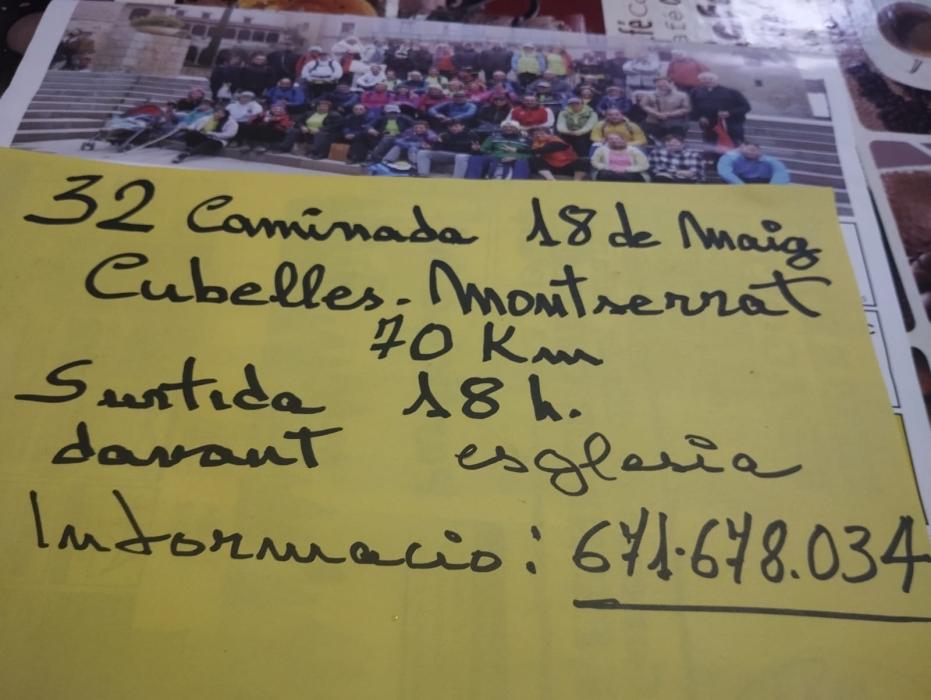 32 Caminada 18 de Maig
Cubelles. Montserrat
70 Km
Surtida 18 h.
davant esglesia
Informacio: 671.678.034